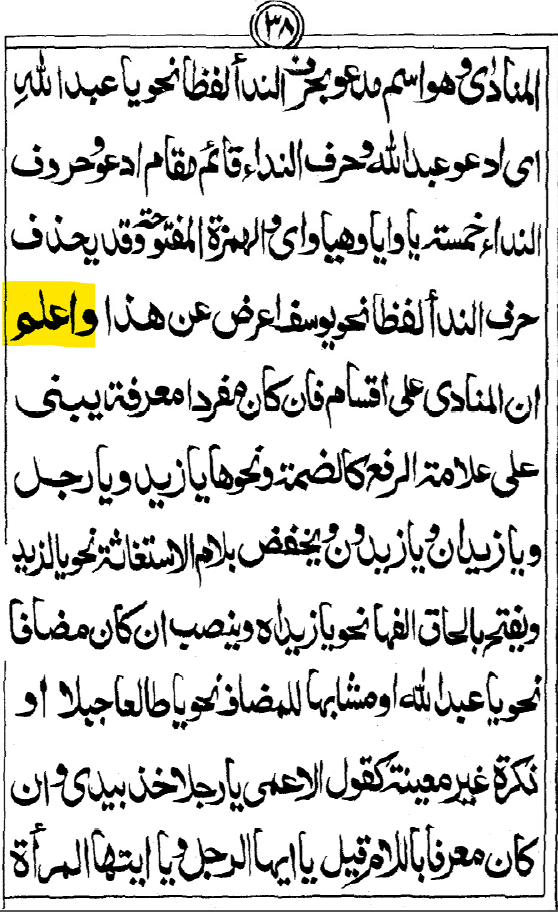 ٣٨
المنادٰى وهو اسم مدعو بحرف الندأ لفظا نحو يا عبد اللهِ
اى ادعو عبد الله وحرف النداء قائم مقام ادعو وحروف
النداء خمسته يا وايا وهيا واى والهمزة المفتوحة وقد يحذف
حرف الندأ لفظا نحو يوسف اعرض عن هذا واعلم
ان المنادى على اقسام فان كان مفردا معرفة يبنى
على علامة الرفع كالضمة ونحوها يا زيد ويا رجل
ويا زيدان ويا زيدون ويخفض بلام الاستغاثة نحو يا لزيد
ويفتح بالحاق الفها نحو يا زيداه وينصب ان كان مضافا
نحو يا عبد الله او مشابها للمضاف نحو يا طالعا جبلا او
نكرة غير معينة كقول الاعمى يا رجلا خذ بيدى وان
كان معرفا باللام قيل يا ايها الرجل ويا ايتها المرأة